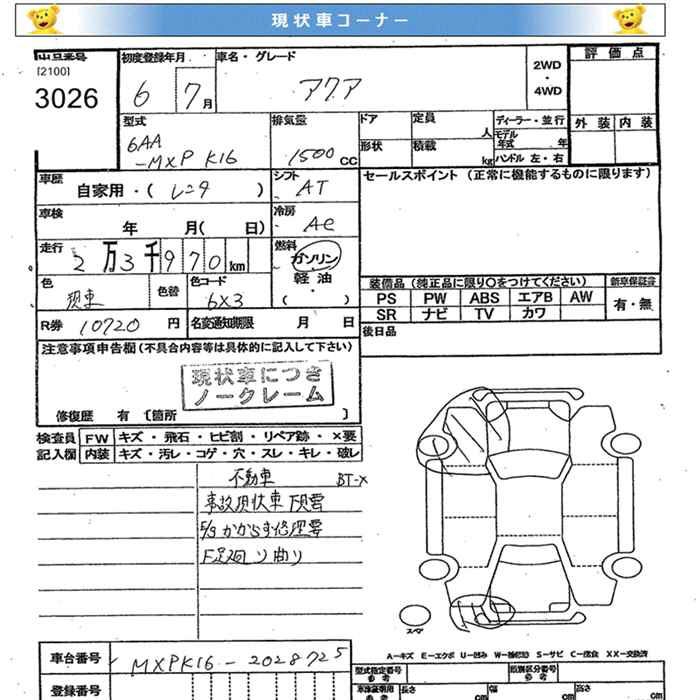 現状車コーナー
出品番号
[2100]
3026
初度登録年月
6 7月
車名・グレード
アクア
2WD
・
4WD
評価点
外装 内装
型式
6AA
-MXPK16
排気量
1500 CC
ドア
定員 人
形状
積載 kg
ディーラー・並行
モデル年式 年
ハンドル 左・右
車歴
自家用・(レンタ)
シフト
AT
セールスポイント (正常に機能するものに限ります)
車検
年 月( 日)
冷房
AC
走行
2万3千970km
燃料
ガソリン
軽油
・( )
色
現車
色替
色コード
6X3
装備品 (純正品に限り〇をつけてください)
新車保証書
PS PW ABS エアB AW
有・無
SR ナビ TV カワ
R券 10720 円
名変通知期限 月 日
後日品
注意事項申告欄(不具合内容等は具体的に記入して下さい)
現状車につき
ノークレーム
修復歴 有 〔箇所 〕
検査員
記入欄
FW キズ・飛石・ヒビ割・リペア跡・×要
内装 キズ・汚レ・コゲ・穴・スレ・キレ・破レ
不動車 BT-X
事故現状車下見要
E/Gかからず修理要
F足廻り曲り
スペア
A－キズ E－エクボ U－凹み W－補修跡 S－サビ C－腐食 XX－交換済
車台番号
MXPK16-2028725
登録番号
型式指定番号
参考
類別区分番号
参考
車検証有効
参考
長さ cm
幅 cm
高さ cm